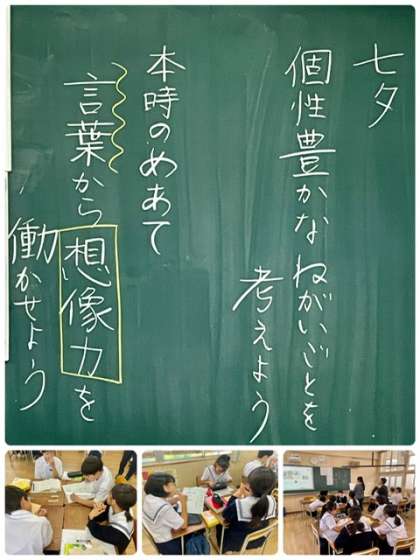 七夕
個性豊かなねがいごとを
考えよう
本時のめあて
言葉から想像力を
働かせよう